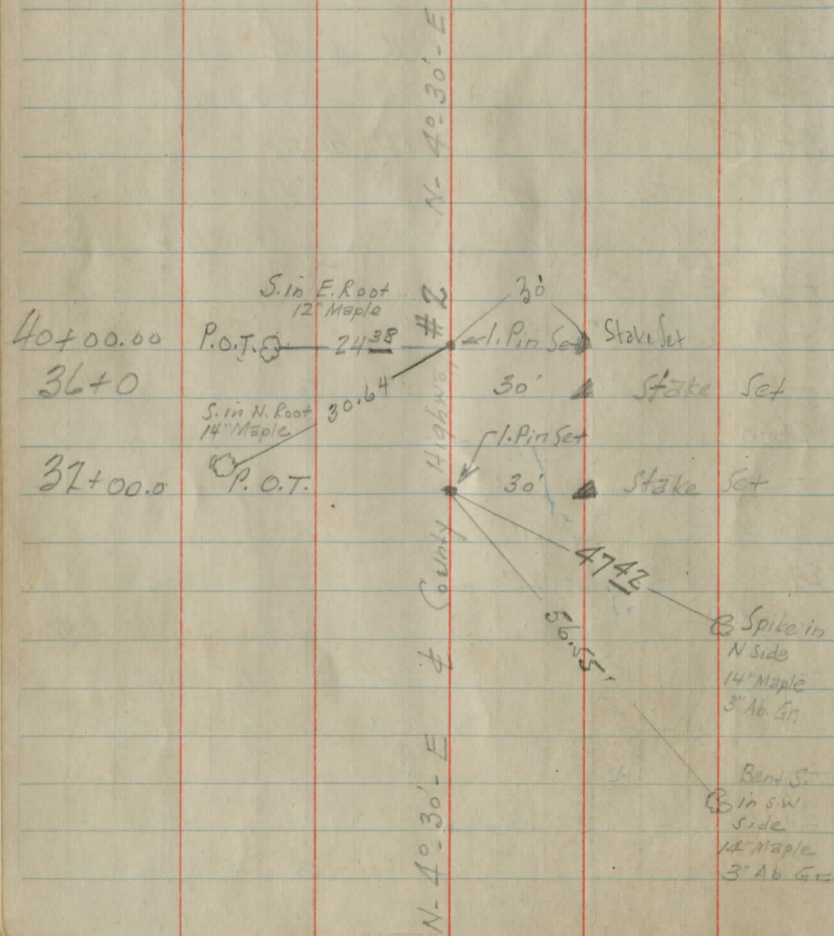 N-4°-30'-E
S. in E. Root
12" Maple
30'
40+00.00 P.O.T. 24 38 #2 I. Pin Set Stake Set
36+0 30' Stake Set
S. in N. Root
14" Maple
30.64
I. Pin Set
32+00.0 P.O.T. 30' Stake Set
℄ County Highway
47 42
56.55'
Spike in
N Side
14" Maple
3" Ab. Gr.
N-4°-30'-E
Bent S.
in S.W.
Side
14" Maple
3" Ab Gr